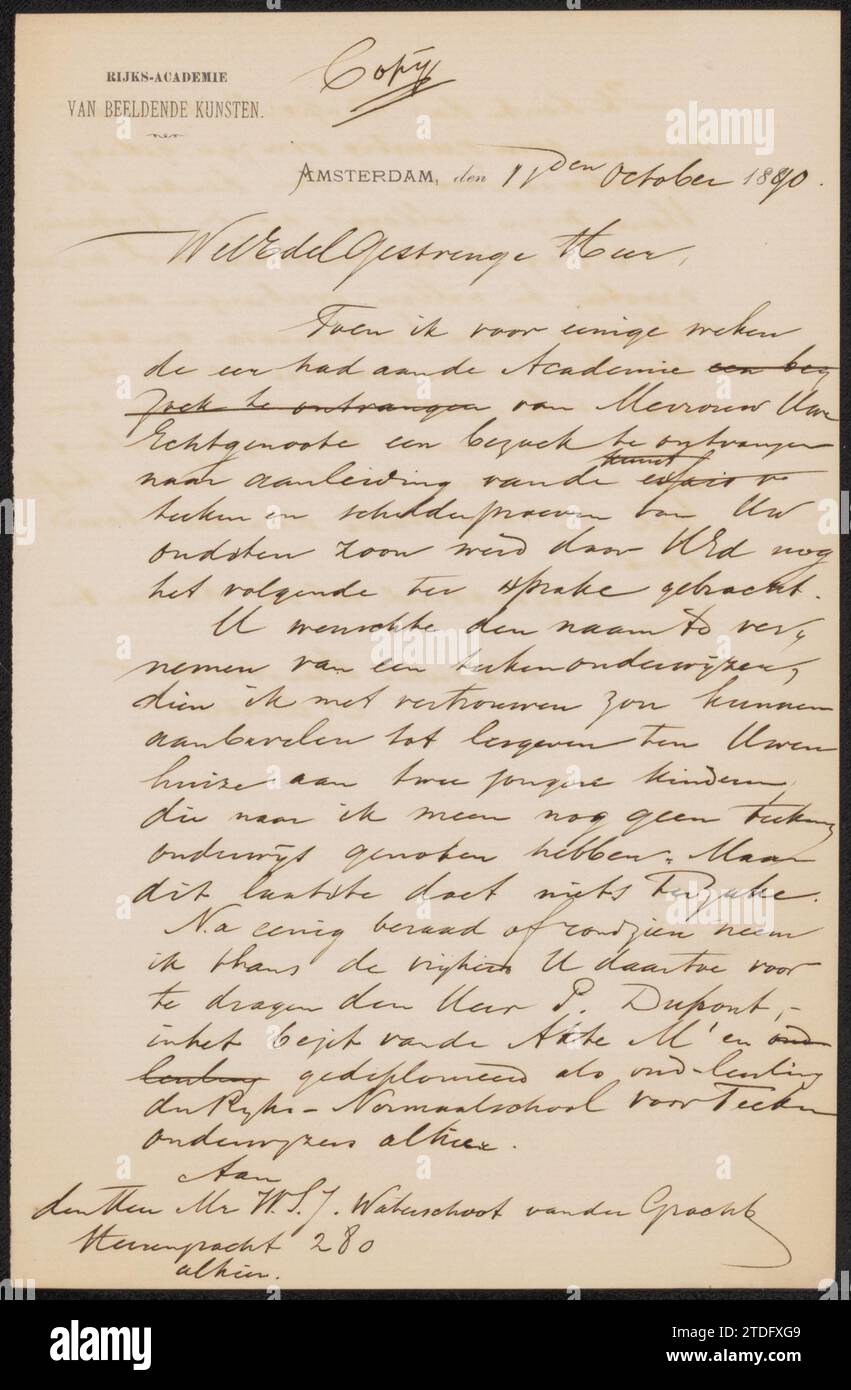 RIJKS-ACADEMIE
VAN BEELDENDE KUNSTEN.
Copy
AMSTERDAM, den 17den October 1890.
WelEdelGestrenge Heer,
Toen ik voor eenige weken
de eer had aan de Academie een be„
zoek te ontvangen van Mevrouw Uwe
Echtgenoote een bezoek te ontvangen
naar aanleiding van de kunst
teeken en schilderproeven van Uw
oudsten zoon werd door UEd nog
het volgende ter sprake gebracht.
U wenschte den naam te ver„
nemen van een teekenonderwijzer,
dien ik met vertrouwen zou kunnen
aanbevelen tot lesgeven ten Uwen
huize aan twee jongere kinderen,
die naar ik meen nog geen teeken„
onderwijs genoten hebben. Maar
dit laatste doet niets ter zake.
Na eenig beraad of rondzien neem
ik thans de vrijheid U daartoe voor
te dragen den Heer P. Dupont,–
in het bezit van de Akte M' en oud
leerling gediplomeerd als oud-leerling
der Rijks-Normaalschool voor Teeken
onderwijzers alhier.
Aan
den Heer Mr W.S.J. Waterschoot van der Gracht
Heerengracht 280
alhier.
alamy
Image ID: 2TDFXG9
www.alamy.com